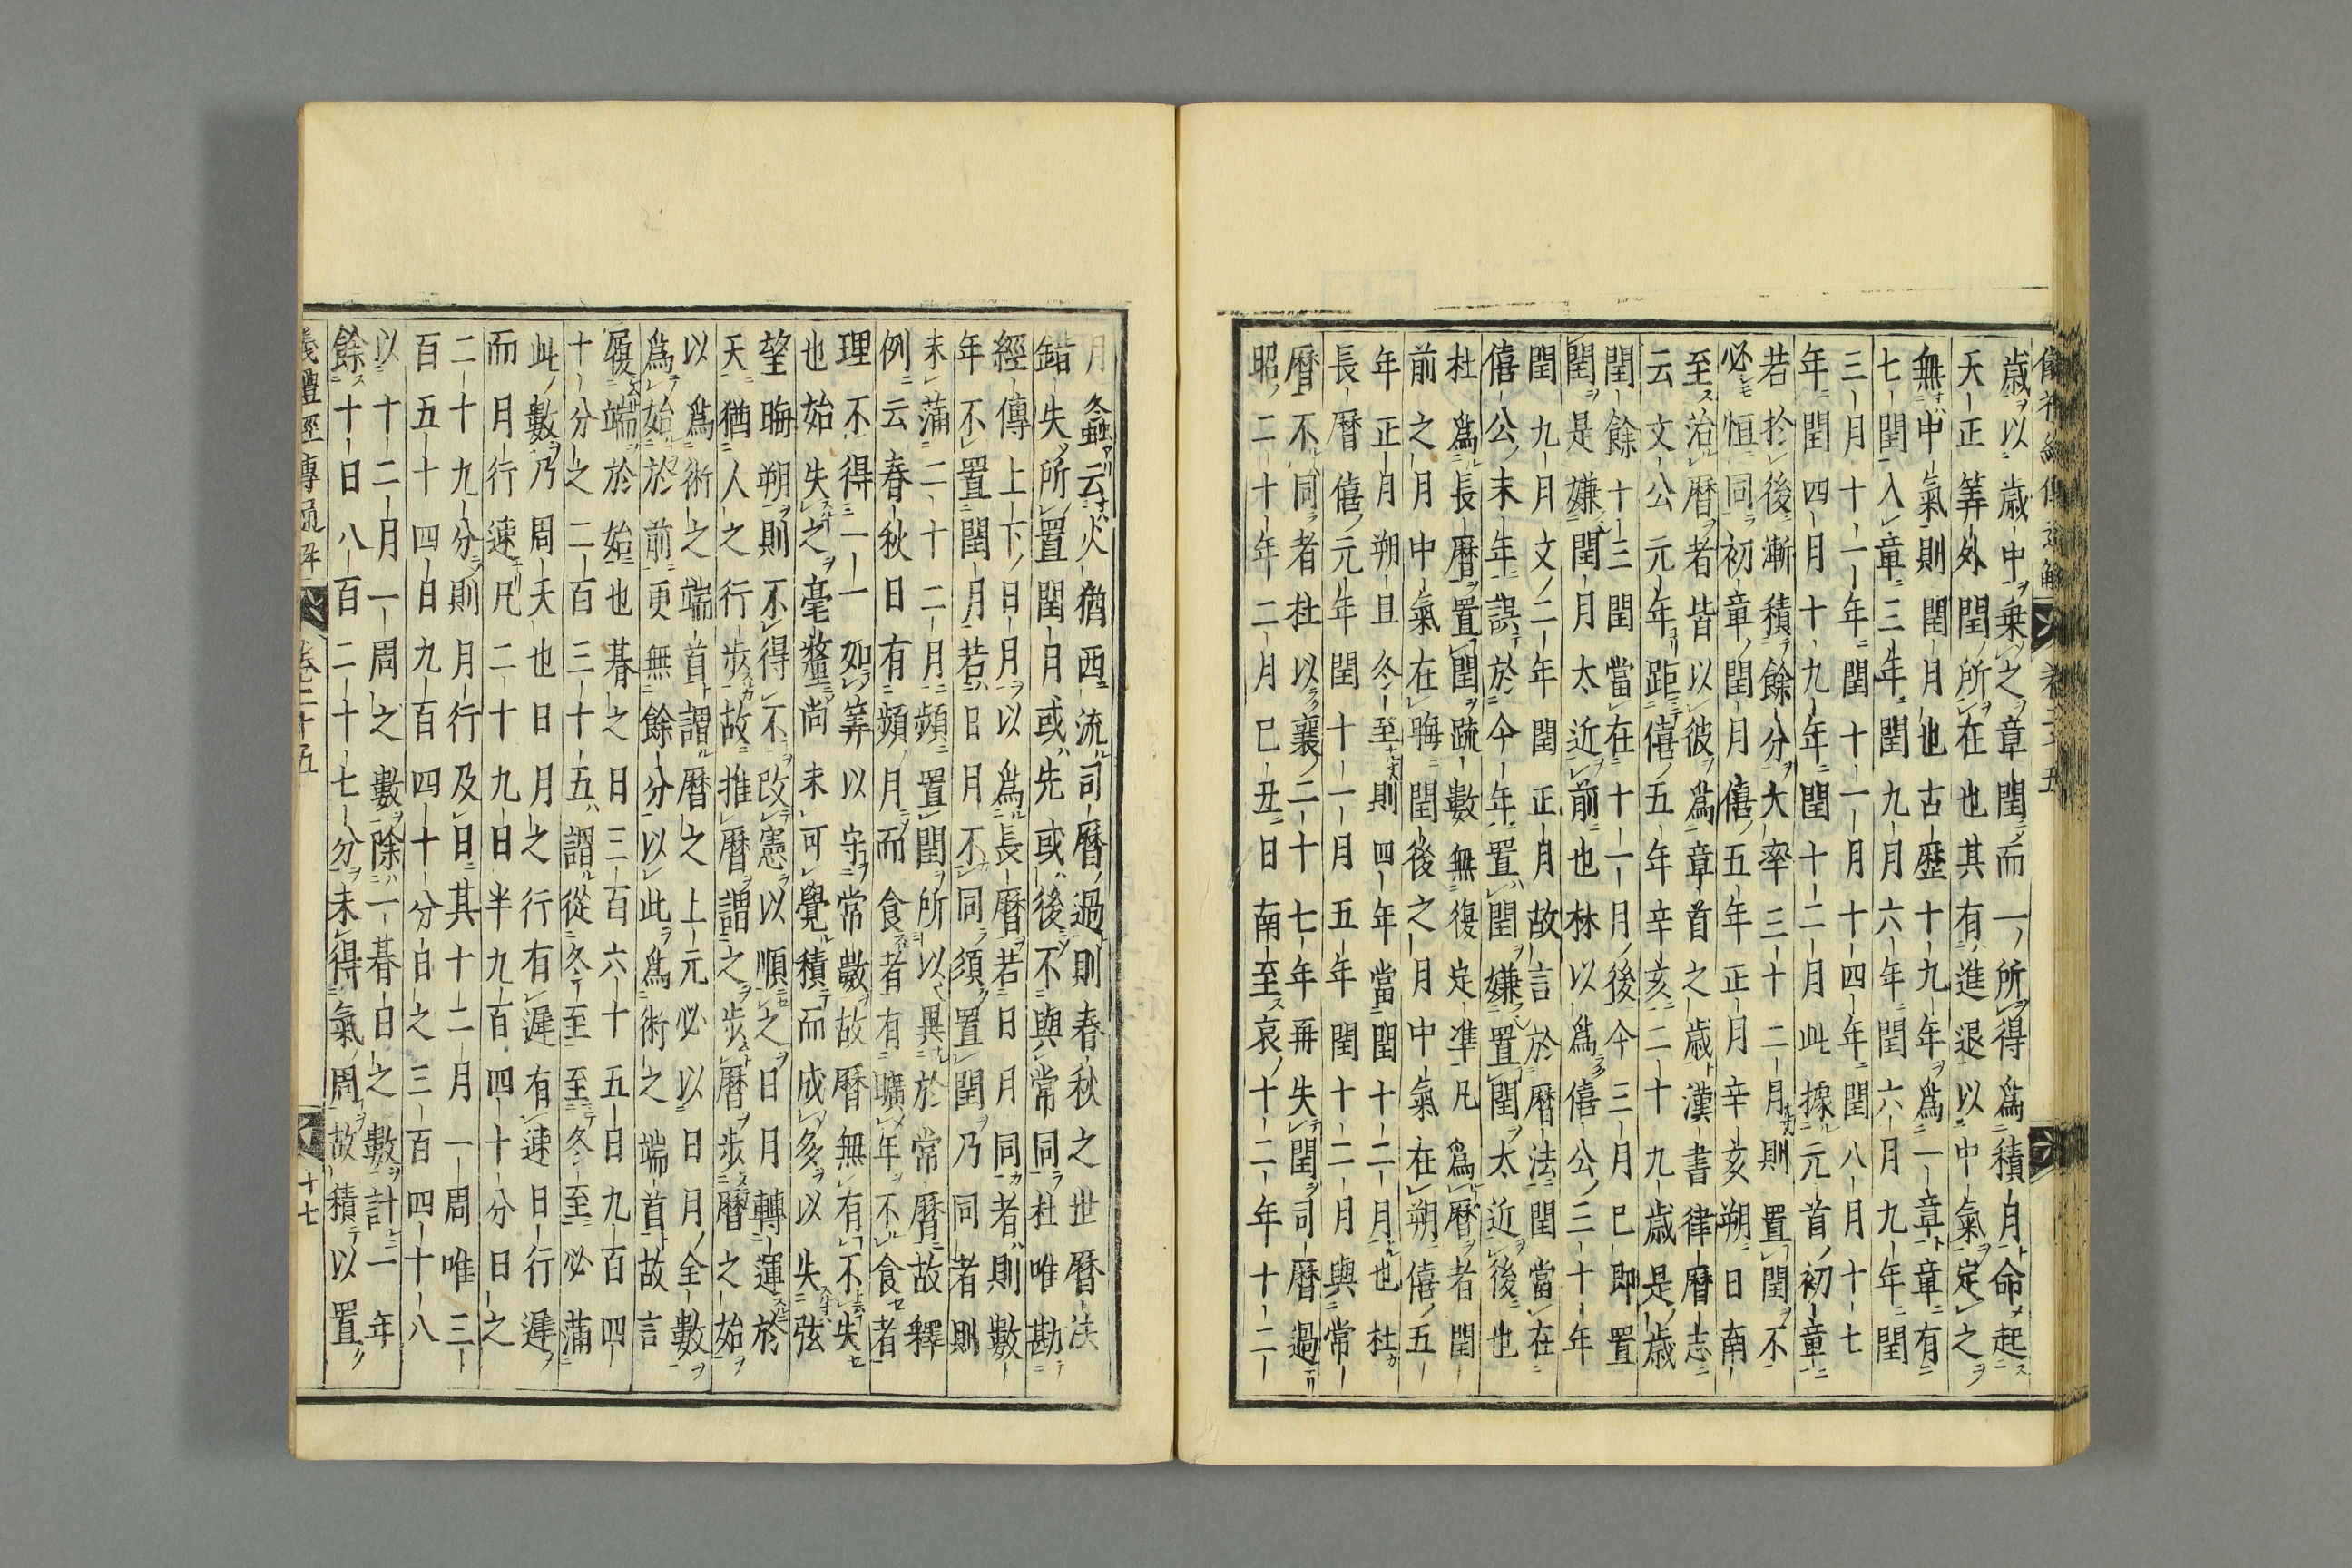 歳以歳中乗之章閏而一所得爲積月命起
天正筭外閏所在也其有進退以中氣定之
無中氣則閏月也古歴十九年爲一章章有
七閏入章三年閏九月六年閏六月九年閏
三月十一年閏十一月十四年閏八月十七
年閏四月十九年閏十二月此據元首初章
若於後漸積餘分大率三十二月則置閏不
必恒同初章閏月僖五年正月辛亥朔日南
至治暦者皆以彼爲章首之歳漢書律暦志
云文公元年距僖五年辛亥二十九歳是歳
閏餘十三閏當在十一月後今三月已即置
閏是嫌閏月太近前也林以爲僖公三十年
閏九月文二年閏正月故言於暦法閏當在
僖公末年誤於今年置閏嫌置閏太近後也
杜爲長暦置閏疏數無復定準凡爲暦者閏
前之月中氣在晦閏後之月中氣在朔僖五
年正月朔旦冬至則四年當閏十二月也杜
長暦僖元年閏十一月五年閏十二月與常
暦不同者杜以襄二十七年再失閏司暦過
昭二十年二月已丑日南至哀十二年十二
月螽云火猶西流司暦過則春秋之世暦法
錯失所置閏月或先或後不與常同杜唯勘
經傳上下日月以爲長暦若日月同者則數
年不置閏月若日月不同須置閏乃同者則
未滿二十二月頻置閏所以異於常暦故釋
例云春秋日有頻月而食者有曠年不食者
理不得一一如筭以守常數故暦無有不失
也始失之毫釐尚未可覺積而成多以失弦
望晦朔則不得不改憲以順之日月轉運於
天猶人之行歩故推暦謂之歩暦歩暦之始
以爲術之端首謂暦之上元必以日月全數
爲始於前更無餘分以此爲術之端首故言
履端於始也朞之日三百六十五日九百四
十分之二百三十五謂從冬至至冬至必滿
此數乃周天也日月之行有遲有速日行遲
而月行速凡二十九日半九百四十分日之
二十九分則月行及日其十二月一周唯三
百五十四日九百四十分日之三百四十八
以十二月一周之數除一朞日之數計一年
餘十日八百二十七分未得氣周故積以置
儀禮經傳通解 卷二十五 十七